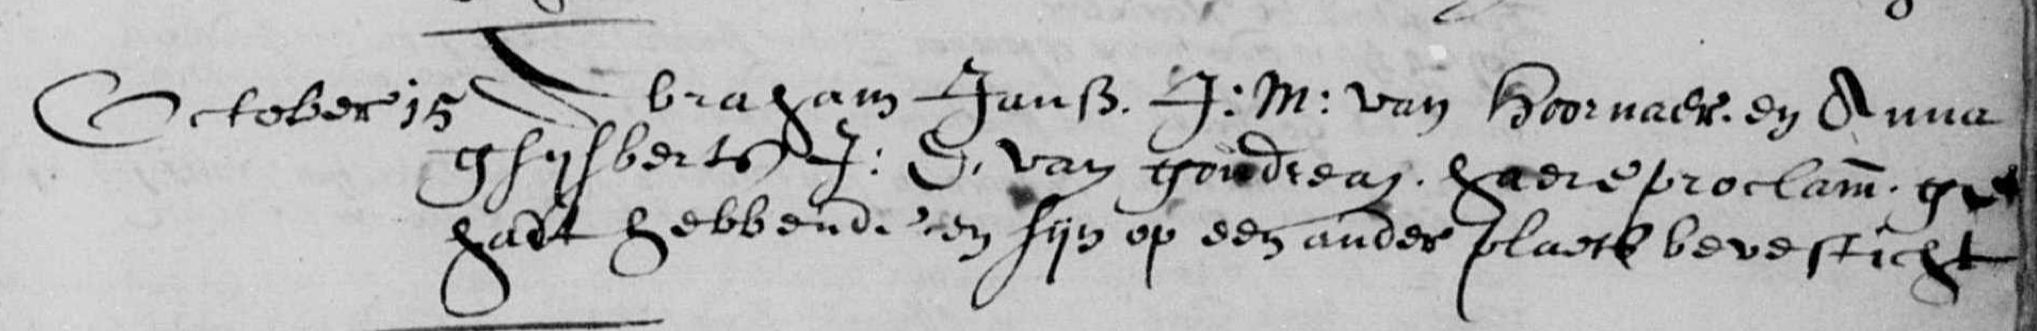 October 15 Abraham Janß. J: M: van Hoornaer. en Anna
ghijsberts J: D. van goudreaĳ. haere proclam̄. ge
hadt hebbende en sijn op een ander plaets bevesticht